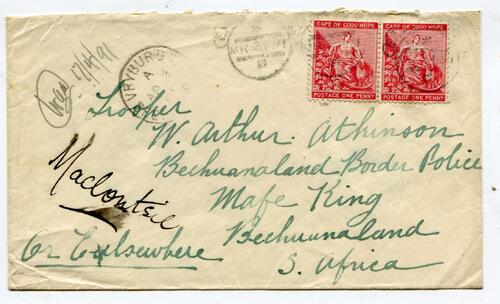 CAPE OF GOOD HOPE CAPE OF GOOD HOPE
POSTAGE ONE PENNY POSTAGE ONE PENNY
VRYBURG
A
MR
17/4/91
Trooper
W. Arthur. Atkinson
Bechuanaland Border Police
Mafe King
Macloutsie
Or Eulsewhere Bechuanaland
S. Africa